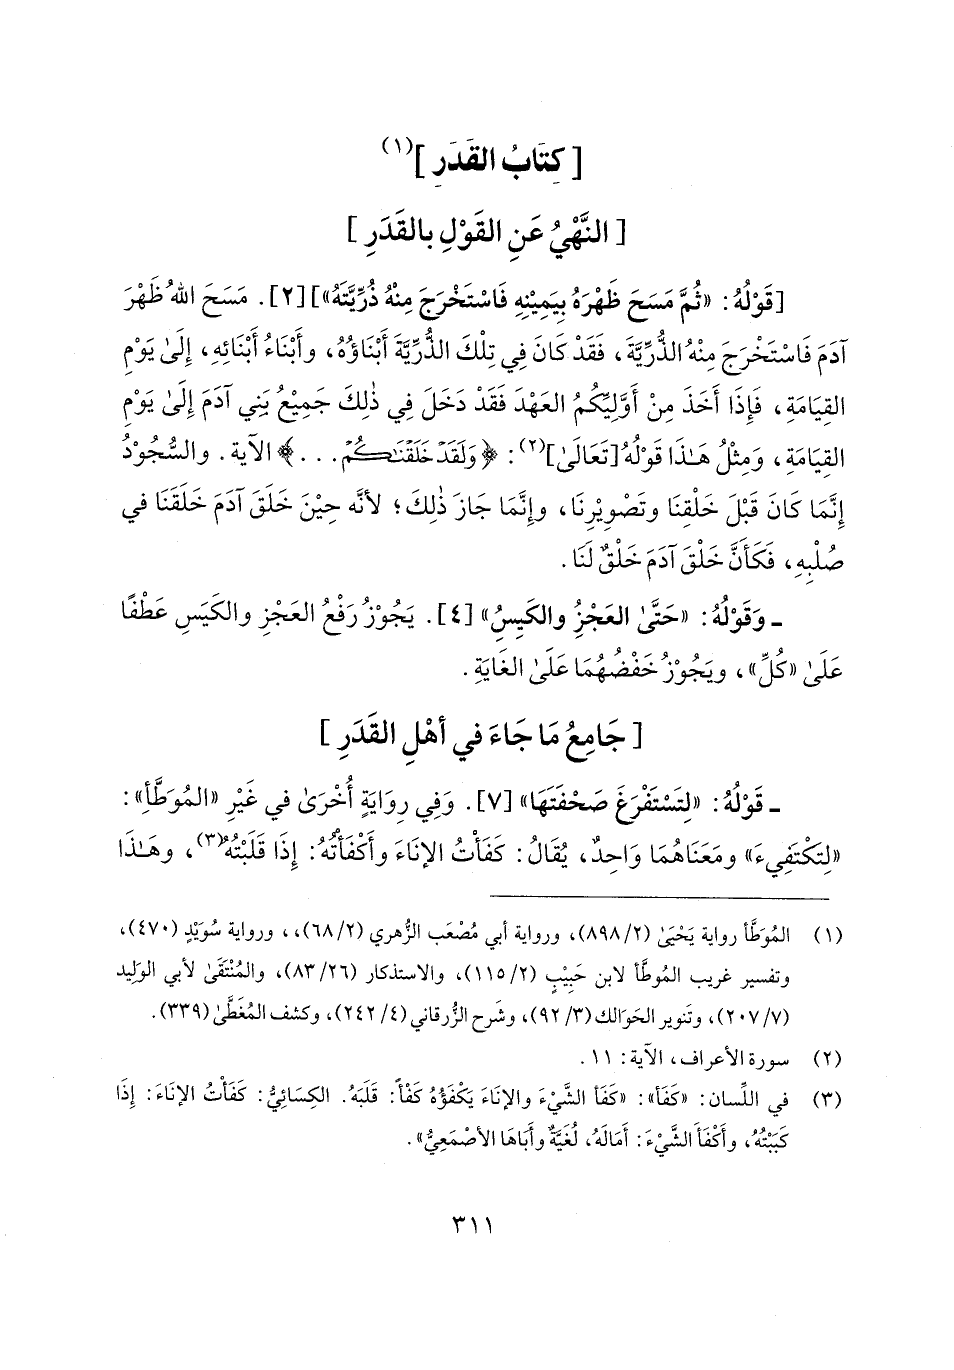 [ كِتَابُ القَدَرِ ](١)
[ النَّهْيُ عَنِ القَوْلِ بالقَدَرِ ]
[قَوْلُهُ: «ثُمَّ مَسَحَ ظَهْرَهُ بِيَمِيْنِهِ فَاسْتَخْرَجَ مِنْهُ ذُرِّيَّتَهُ»][٢]. مَسَحَ اللهُ ظَهْرَ
آدَمَ فَاسْتَخْرَجَ مِنْهُ الذُّرِّيَّةَ، فَقَدْ كَانَ فِي تِلْكَ الذُّرِّيَّةَ أَبْنَاؤُهُ، وأَبْنَاءُ أَبْنَائِهِ، إِلَىٰ يَوْمِ
القِيَامَةِ، فَإِذَا أَخَذَ مِنْ أَوَّلِيِّكُمُ العَهْدَ فَقَدْ دَخَلَ فِي ذٰلِكَ جَمِيْعُ بَنِي آدَمَ إِلَىٰ يَوْمِ
القِيَامَةِ، وَمِثْلُ هَـٰذَا قَوْلُهُ [تَعَالَىٰ](٢): ﴿وَلَقَدْ خَلَقْنَـٰكُمْ...﴾ الآية. والسُّجُوْدُ
إِنَّمَا كَانَ قَبْلَ خَلْقِنَا وتَصْوِيْرِنَا، وإِنَّمَا جَازَ ذٰلِكَ؛ لأنَّه حِيْنَ خَلَقَ آدَمَ خَلَقَنَا في
صُلْبِهِ، فَكَأَنَّ خَلْقَ آدَمَ خَلْقٌ لَنَا.
ـ وَقَوْلُهُ: «حَتَّىٰ العَجْزُ والكَيِسُ» [٤]. يَجُوْزُ رَفْعُ العَجْزِ والكَيَسِ عَطْفًا
عَلَىٰ «كُلِّ»، ويَجُوْزُ خَفْضُهُمَا عَلَىٰ الغَايَةِ.
[ جَامِعُ مَا جَاءَ في أهْلِ القَدَرِ ]
ـ قَوْلُهُ: «لِتَسْتَفْرِغَ صَحْفَتَهَا» [٧]. وَفِي رِوَايَةٍ أُخْرَىٰ في غَيْرِ «المُوَطَّأِ»:
«لِتَكْتَفِيءَ» ومَعَنَاهُمَا وَاحِدٌ، يُقَالُ: كَفَأْتُ الإنَاءَ وأَكْفَأْتُهُ: إِذَا قَلَبْتُهُ(٣)، وهَـٰذَا
(١) المُوَطَّأ رواية يَحْيَىٰ (٢/ ٨٩٨)، ورواية أبي مُصْعَب الزُّهري (٢/ ٦٨)،، ورواية سُوَيْدٍ (٤٧٠)،
وتفسير غريب المُوطَّأ لابن حَبِيْبٍ (٢/ ١١٥)، والاستذكار (٢٦/ ٨٣)، والمُنْتَقَىٰ لأبي الوَلِيد
(٧/ ٢٠٧)، وتنوير الحَوَالك (٣/ ٩٢)، وشَرح الزُّرقاني (٤/ ٢٤٢)، وكشف المُغَطَّىٰ (٣٣٩).
(٢) سورة الأعراف، الآية: ١١.
(٣) في اللِّسان: «كَفَأ»: «كَفَأ الشَّيْءَ والإنَاءَ يَكْفَؤُهُ كَفْأً: قَلَبَهُ. الكِسَائِيُّ: كَفَأْتُ الإنَاءَ: إِذَا
كَبَبْتُهُ، وأَكْفَأَ الشَّيْءَ: أَمَالَهُ، لُغَيَّةٌ وأَبَاهَا الأصْمَعِيُّ».
٣١١